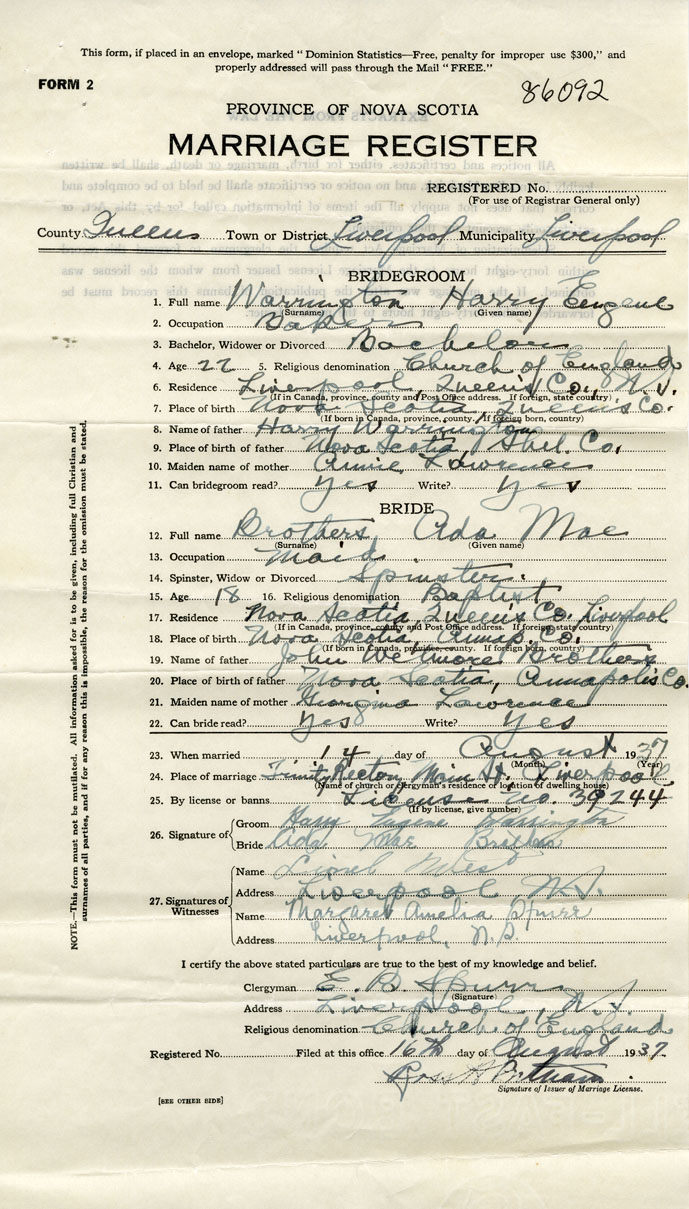 This form, if placed in an envelope, marked "Dominion Statistics—Free, penalty for improper use $300," and
properly addressed will pass through the Mail "FREE."
FORM 2
86092
PROVINCE OF NOVA SCOTIA
MARRIAGE REGISTER
REGISTERED No.
(For use of Registrar General only)
County Queens Town or District Liverpool Municipality Liverpool
BRIDEGROOM
1. Full name Warrington Harry Eugene
(Surname) (Given name)
2. Occupation Baker
3. Bachelor, Widower or Divorced Bachelor
4. Age 22 5. Religious denomination Church of England
6. Residence Liverpool, Queen's Co., N.S.
(If in Canada, province, county and Post Office address. If foreign, state country)
7. Place of birth Nova Scotia, Queen's Co.
(If born in Canada, province, county. If foreign born, country)
8. Name of father Harry Warrington
9. Place of birth of father Nova Scotia, Shel. Co.
10. Maiden name of mother Annie Lawrence
11. Can bridegroom read? Yes Write? Yes
BRIDE
12. Full name Brothers, Ada Mae
(Surname) (Given name)
13. Occupation Maid.
14. Spinster, Widow or Divorced Spinster.
15. Age 18 16. Religious denomination Baptist
17. Residence Nova Scotia, Queen's Co. Liverpool
(If in Canada, province, county and Post Office address. If foreign state country)
18. Place of birth Nova Scotia, Annap. Co.
(If born in Canada, province, county. If foreign born, country)
19. Name of father John Wetmore Brothers
20. Place of birth of father Nova Scotia, Annapolis Co.
21. Maiden name of mother Georgina Lawrence
22. Can bride read? Yes Write? Yes
23. When married 14 day of August 1937
(Month) (Year)
24. Place of marriage Trinity Rectory Main St. Liverpool
(Name of church or clergyman's residence or location of dwelling house)
25. By license or banns License no. 39244
(If by license, give number)
26. Signature of Groom Harry Eugene Warrington
Bride Ada Mae Brothers
27. Signatures of Witnesses
Name Lionel
Address Liverpool N.S.
Name Margaret Amelia Spurr
Address Liverpool, N.S.
I certify the above stated particulars are true to the best of my knowledge and belief.
Clergyman E. B. Spurr
(Signature)
Address Liverpool, N.S.
Religious denomination Church of England
Registered No. Filed at this office 16th day of August 1937.
Putnam
Signature of Issuer of Marriage License.
[SEE OTHER SIDE]
NOTE.—This form must not be mutilated. All information asked for is to be given, including full Christian and
surnames of all parties, and if for any reason this is impossible, the reason for the omission must be stated.